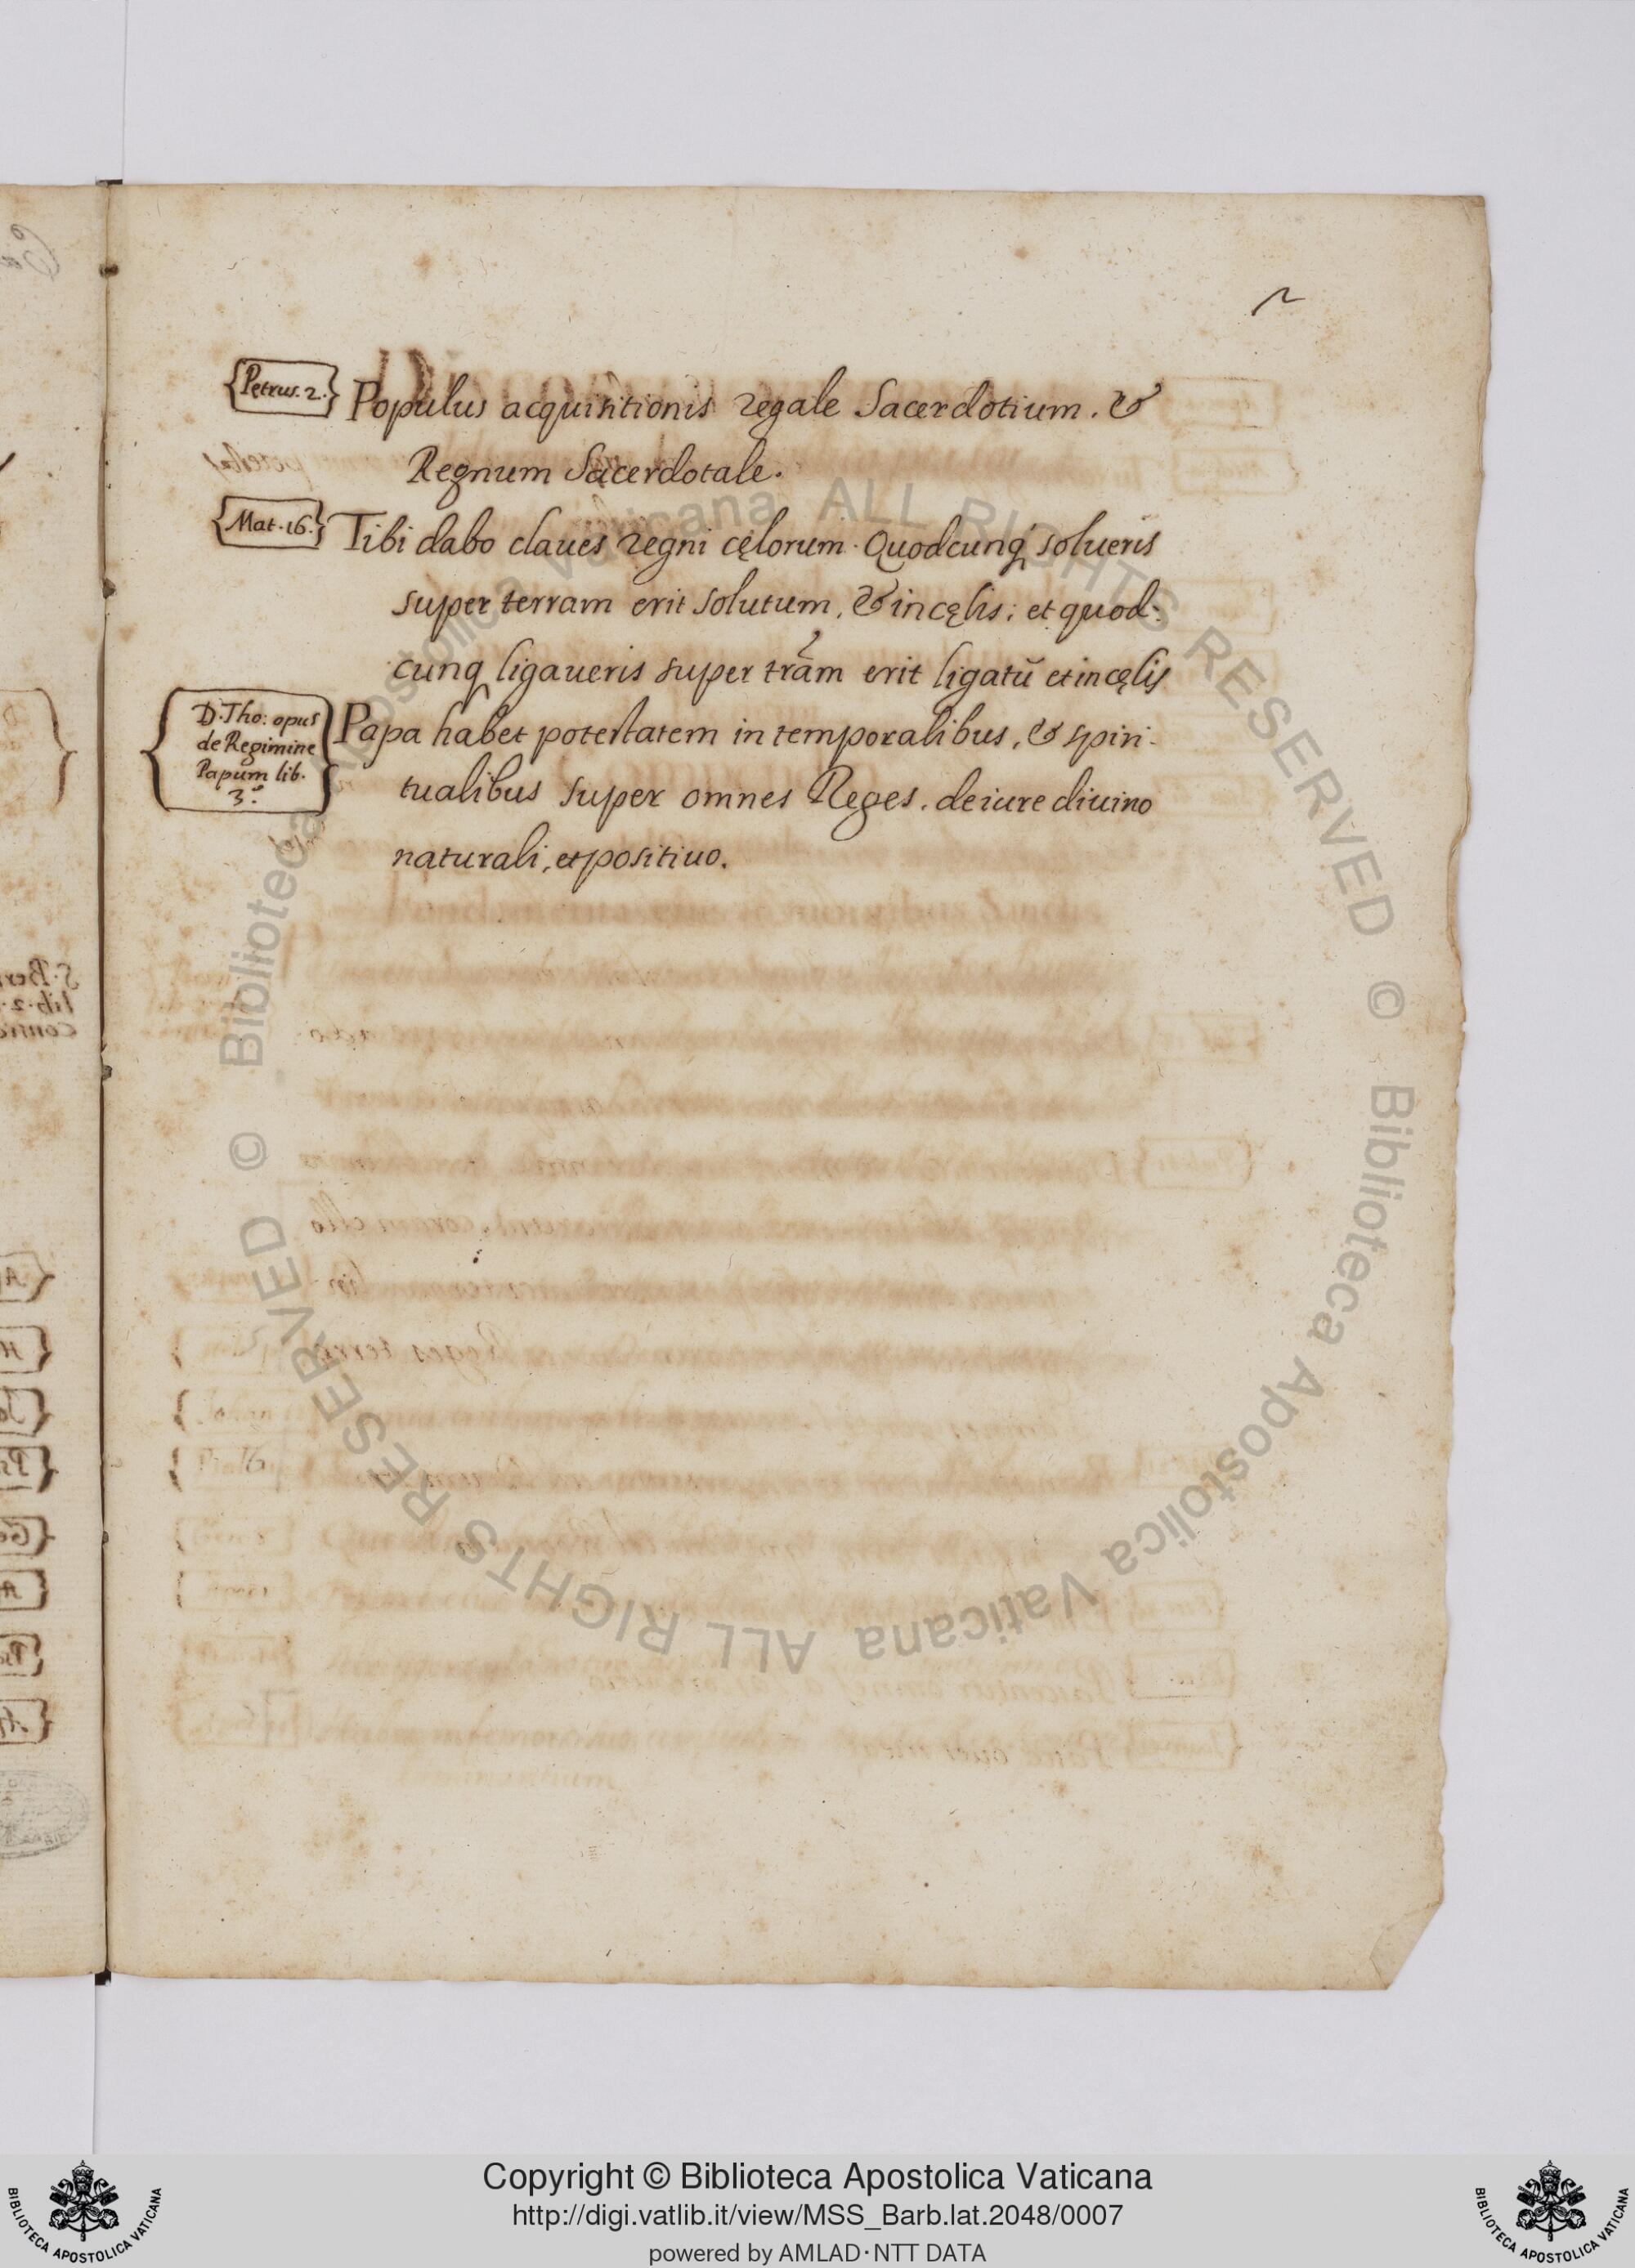 2
Petrus. 2.
Populus acquisitionis regale Sacerdotium. &
Regnum Sacerdotale.
Mat. 16.
Tibi dabo claues regni cęlorum. Quodcunq solueris
super terram erit solutum, & in cęlis; et quod-
cunq ligaueris super trãm erit ligatũ et in cęlis
D. Tho: opus
de Regimine
Papum lib.
3.º
Papa habet potestatem in temporalibus, & spiri-
tualibus super omnes Reges. de iure diuino
naturali, et positiuo.
S. Ber
lib. 2.
© Biblioteca Apostolica Vaticana ALL RIGHTS RESERVED © Biblioteca Apostolica Vaticana ALL RIGHTS RESERVED
Copyright © Biblioteca Apostolica Vaticana
http://digi.vatlib.it/view/MSS_Barb.lat.2048/0007
powered by AMLAD·NTT DATA
BIBLIOTECA APOSTOLICA VATICANA
BIBLIOTECA APOSTOLICA VATICANA